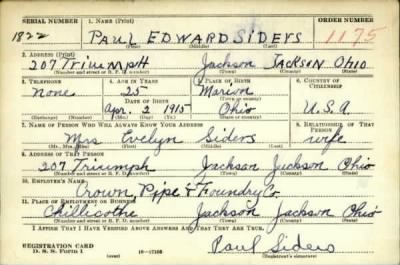 SERIAL NUMBER 1. NAME (Print) ORDER NUMBER
1822 PAUL EDWARD SIDERS 1175
(First) (Middle) (Last)
2. ADDRESS (Print)
207 Triumph Jackson JACKSON Ohio
(Number and street or R. F. D. number) (Town) (County) (State)
3. TELEPHONE 4. AGE IN YEARS 5. PLACE OF BIRTH 6. COUNTRY OF CITIZENSHIP
none 25 Marion
DATE OF BIRTH (Town or county)
Apr. 2, 1915 Ohio U.S.A
(Exchange) (Number) (Mo.) (Day) (Yr.) (State or country)
7. NAME OF PERSON WHO WILL ALWAYS KNOW YOUR ADDRESS 8. RELATIONSHIP OF THAT PERSON
Mrs Evelyn Siders wife
(Mr., Mrs., Miss) (First) (Middle) (Last)
9. ADDRESS OF THAT PERSON
207 Triumph Jackson Jackson Ohio
(Number and street or R. F. D. number) (Town) (County) (State)
10. EMPLOYER'S NAME
Crown, Pipe & Foundry Co.
11. PLACE OF EMPLOYMENT OR BUSINESS
Chillicothe Jackson Jackson Ohio
(Number and street or R. F. D. number) (Town) (County) (State)
I AFFIRM THAT I HAVE VERIFIED ABOVE ANSWERS AND THAT THEY ARE TRUE.
Paul Siders
REGISTRATION CARD
D. S. S. Form 1 (over) 16—17105 (Registrant's signature)